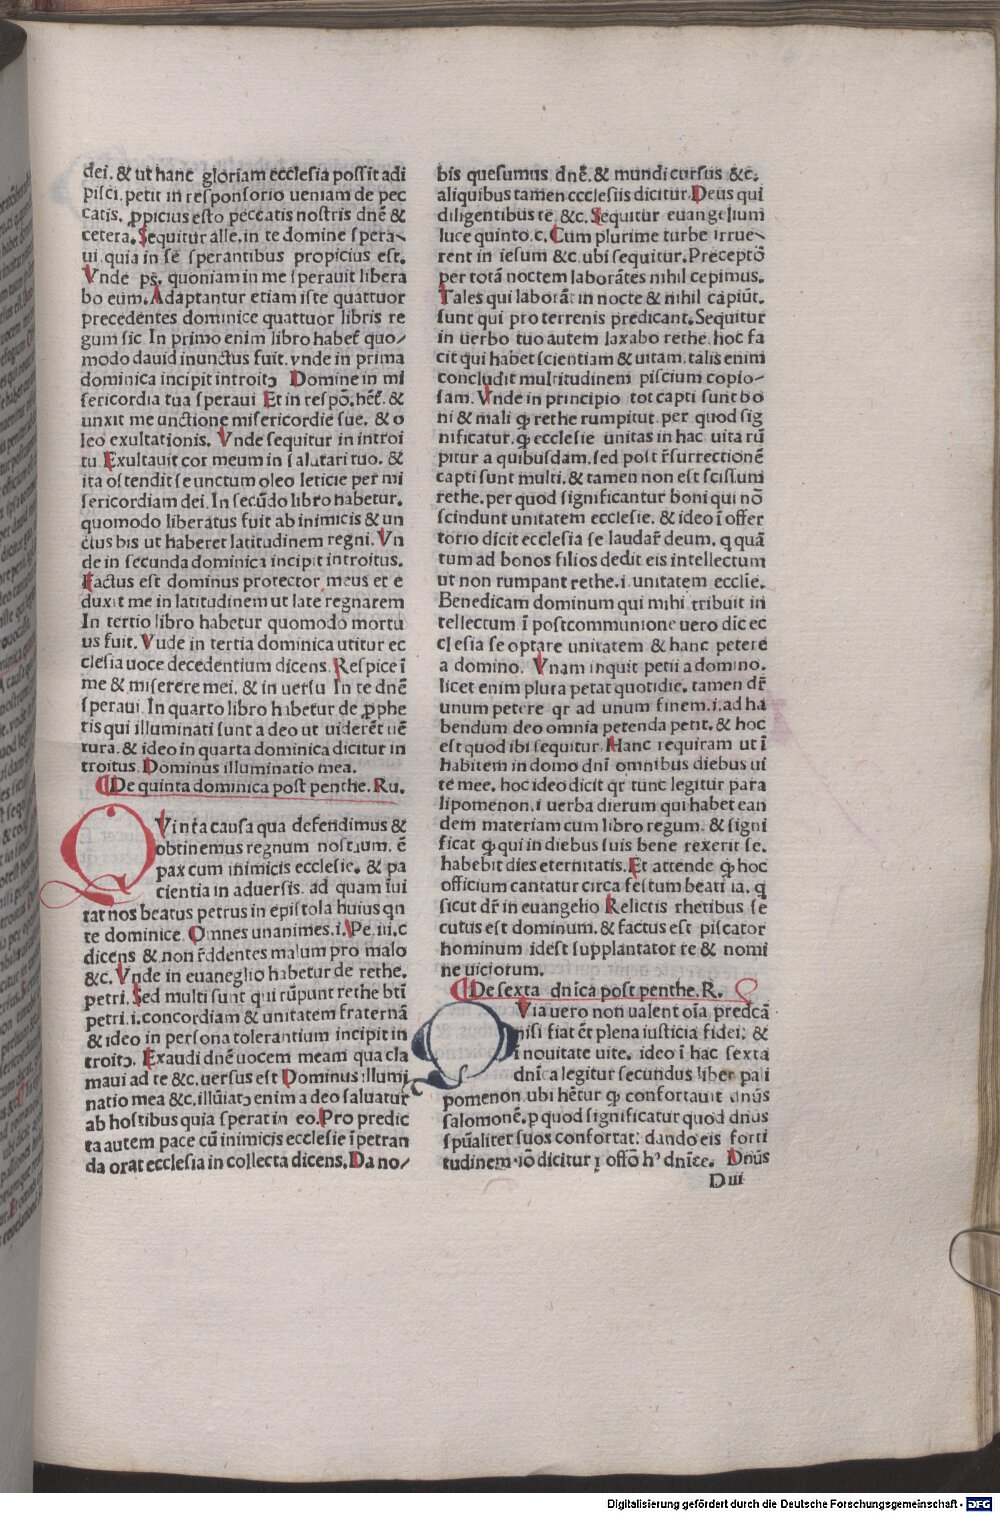 dei. & ut hanc gloriam ecclesia possit adi
pisci. petit in responsorio ueniam de pec
catis. ꝓpicius esto peccatis nostris dnē &
cetera. Sequitur alle. in te domine spera-
ui. quia in se sperantibus propicius est.
Vnde ps. quoniam in me sperauit libera
bo eum. Adaptantur etiam iste quattuor
precedentes dominice quattuor libris re
gum sic. In primo enim libro habet᷑ quo/
modo dauid inunctus fuit. vnde in prima
dominica incipit introitꝰ Domine in mi
sericordia tua speraui Et in respō. hēt᷑. &
unxit me unctione misericordie sue. & o
leo exultationis. Vnde sequitur in introi
tu. Exultauit cor meum in salutari tuo. &
ita ostendit se unctum oleo leticie per mi
sericordiam dei. In secūdo libro habetur.
quomodo liberatus fuit ab inimicis & un
ctus bis ut haberet latitudinem regni. Vn
de in secunda dominica incipit introitus.
Factus est dominus protector meus et e
duxit me in latitudinem ut late regnarem
In tertio libro habetur quomodo mortu
us fuit. Vude in tertia dominica utitur ec
clesia uoce decedentium dicens. Respice ī
me & miserere mei. & in uersu In te dnē
speraui. In quarto libro habetur de ꝓphe
tis qui illuminati sunt a deo ut uiderēt uē
tura. & ideo in quarta dominica dicitur in
troitus Dominus illuminatio mea.
De quinta dominica post penthe. Ru.
QVinta causa qua defendimus &
obtinemus regnum nostrum. ē
pax cum inimicis ecclesie. & pa
cientia in aduersis. ad quam īui
tat nos beatus petrus in epistola huius qn
te dominice Omnes unanimes. i. Pe. iii. c
dicens & non r̄ddentes malum pro malo
&c. Vnde in euaneglio habetur de rethe.
petri. Sed multi sunt qui rūpunt rethe bt̄i
petri. i. concordiam & unitatem fraternā
& ideo in persona tolerantium incipit in
troitꝰ. Exaudi dnē uocem meam qua cla
maui ad te &c. uersus est Dominus illumi
natio mea &c. illūiatꝰ enim a deo saluatur
ab hostibus quia sperat in eo. Pro predic
ta autem pace cū inimicis ecclesie ī petran
da orat ecclesia in collecta dicens. Da no/
bis quesumus dnē. & mundi cursus &c.
aliquibus tamen ccclesiis dicitur. Deus qui
diligentibus te. &c. Sequitur euangelium
luce quinto. c. Cum plurime turbe irrue-
rent in iesum &c. ubi sequitur. Preceptō
per totā noctem laborātes nihil cepimus.
Tales qui laborāt in nocte & nihil capiūt.
sunt qui pro terrenis predicant. Sequitur
in uerbo tuo autem laxabo rethe. hoc fa
cit qui habet scientiam & uitam. talis enim
concludit multitudinem piscium copio-
sam. Vnde in principio tot capti sunt bo
ni & mali ꝙ rethe rumpitur. per quod sig
nificatur. ꝙ ecclesie unitas in hac uita rū
pitur a quibusdam. sed post r̄surrectionē
capti sunt multi. & tamen non est scissum
rethe. per quod significantur boni qui nō
scindunt unitatem ecclesie. & ideo ī offer
torio dicit ecclesia se laudar̄ deum. q quā
tum ad bonos filios dedit eis intellectum
ut non rumpant rethe. i. unitatem ecclīe.
Benedicam dominum qui mihi tribuit in
tellectum ī postcommunione uero dic ec
clesia se optare unitatem & hanc petere
a domino. Vnam inquit petii a domino.
licet enim plura petat quotidie. tamen dr̄
unum petere qr ad unum finem. i. ad ha
bendum deo omnia petenda petit. & hoc
est quod ibi sequitur Hanc requiram ut ī
habitem in domo dnī omnibus diebus ui
te mee. hoc ideo dicit qr tunc legitur para
lipomenon. i uerba dierum qui habet ean
dem materiam cum libro regum. & signi
ficat ꝙ qui in diebus suis bene rexerit se.
habebit dies eternitatis. Et attende ꝙ hoc
officium cantatur circa festum beati ia. q
sicut dr̄ in euangelio Relictis rhetibus se
cutus est dominum. & factus est piscator
hominum idest supplantatot re & nomi
ne uiciotum.
De sexta dnīca post penthe. R.
QVia uero non ualent oīa predcā
nisi fiat ēt plena iusticia fidei: &
ī nouitate uite. ideo ī hac sexta
dnīca legitur secundus liber pali
pomenon ubi hētur ꝙ confortauit dnūs
salomonē. p quod significatur quod dnus
spūaliter suos confortat: dando eis forti
tudinem. iō dicitur ī offō hꝰ dnīce. Dnūs
D iii
Digitalisierung gefördert durch die Deutsche Forschungsgemeinschaft - DFG